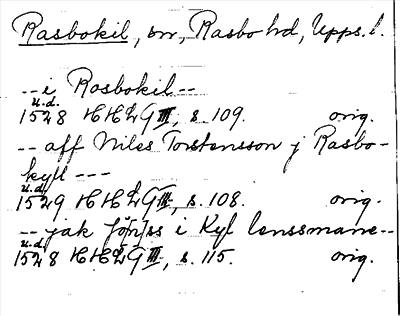 Rasbokil, sn, Rasbo hd, Upps. l.
-- i Rasbokil --
u.d.
1528 HH2G III, s. 109. orig.
-- aff Niles Torstensson j Rasbo-
kyll ---
u.d.
1529 HH2G III, s. 108. orig.
-- jak jønss i Kyl lenssmane --
u.d.
1528 HH2G III, s. 115. orig.